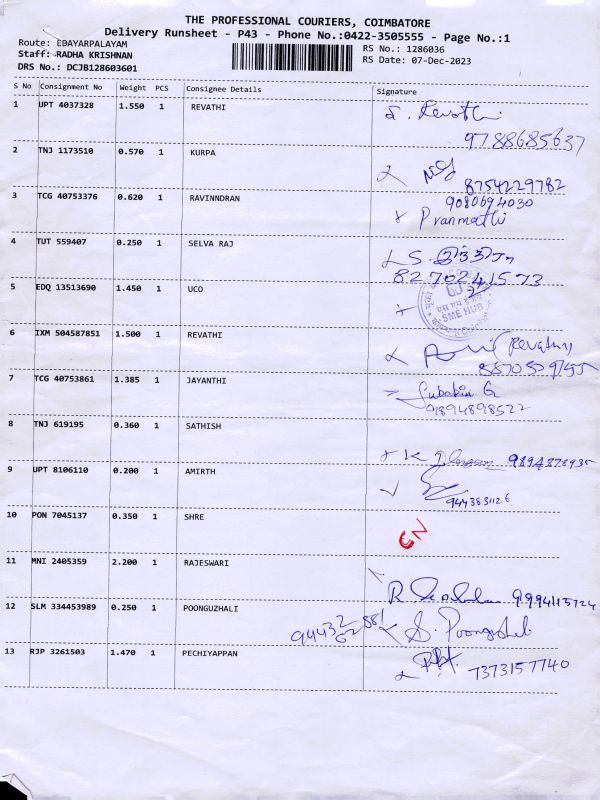 THE PROFESSIONAL COURIERS, COIMBATORE
Delivery Runsheet - P43 - Phone No.:0422-3505555 - Page No.:1
Route: EBAYARPALAYAM RS No.: 1286036
Staff: RADHA KRISHNAN RS Date: 07-Dec-2023
DRS No.: DCJB128603601
S No Consignment No Weight PCS Consignee Details Signature
1 UPT 4037328 1.550 1 REVATHI S. Revathi
9788685637
2 TNJ 1173510 0.570 1 KURPA
8754229782
9080694030
3 TCG 40753376 0.620 1 RAVINNDRAN Pranmathi
4 TUT 559407 0.250 1 SELVA RAJ
8270241573
5 EDQ 13513690 1.450 1 UCO
SME HUB
6 IXM 504587851 1.500 1 REVATHI (Revathy)
7 TCG 40753861 1.385 1 JAYANTHI
9894898522
8 TNJ 619195 0.360 1 SATHISH
9 UPT 8106110 0.200 1 AMIRTH
10 PON 7045137 0.350 1 SHRE
11 MNI 2405359 2.200 1 RAJESWARI
12 SLM 334453989 0.250 1 POONGUZHALI
13 RJP 3261503 1.470 1 PECHIYAPPAN 7373157740